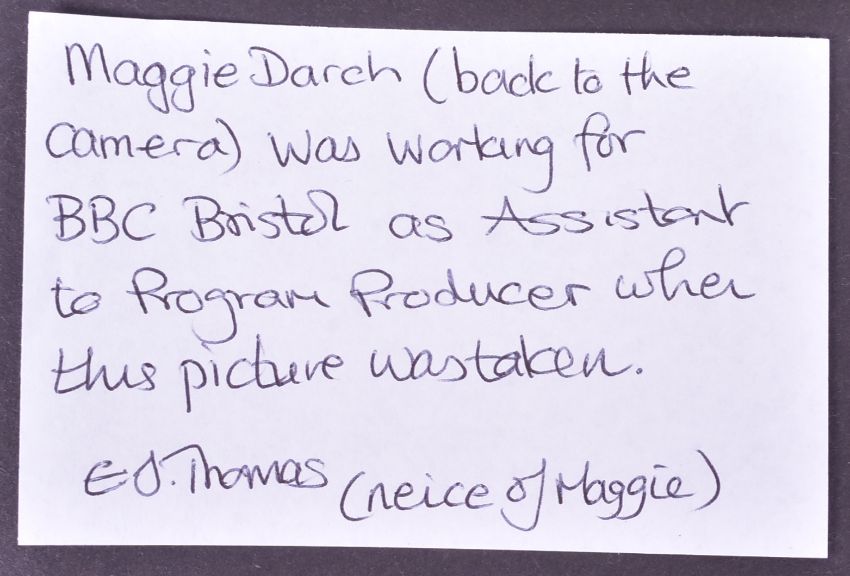 Maggie Darch (back to the
Camera) was working for
BBC Bristol as Assistant
to Program Producer when
this picture was taken.
E J. Thomas (neice of Maggie)